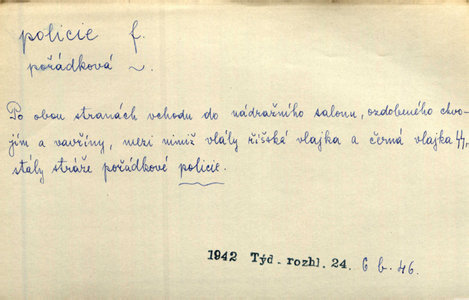 policie f.
pořádková ~.
Po obou stranách vchodu do nádražního salonu, ozdobeného chvo-
jím a vavříny, mezi nimiž vlály říšská vlajka a černá vlajka ϟϟ,
stály stráže pořádkové policie.
1942 Týd. rozhl. 24. 6 b. 46.